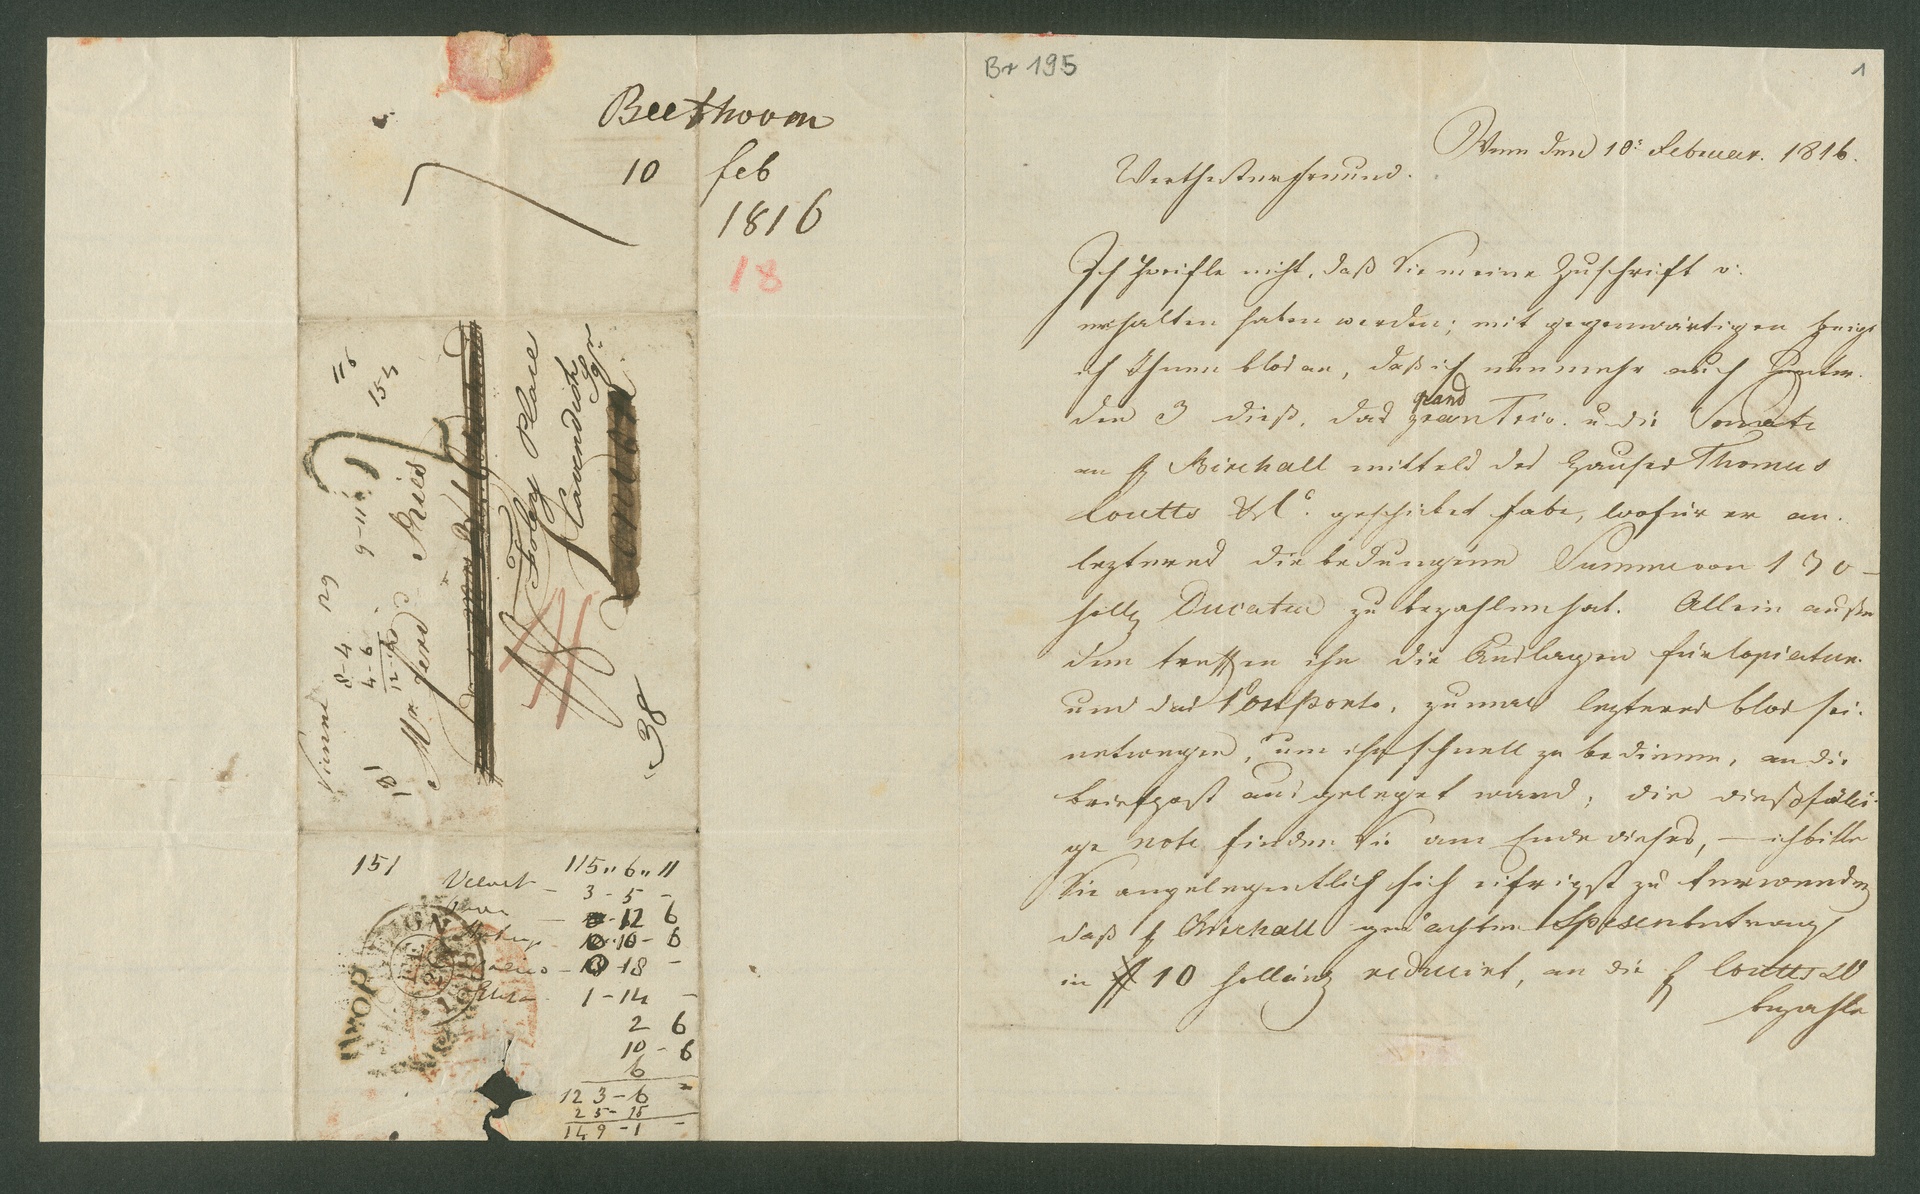 Beethoven
10 feb
1816
18
Vienne
116
154
129
9-11
8-4
4-6
181
Mr. Ferd. Ries
Foley Place
Cavendish Sqr.
London
38
151
115 " 6 " 11
Velvet - 3 - 5 -
12 6
10 - 6
18 -
1 - 14 -
2 6
10 - 6
6
123 - 6 -
25 - 15
149 - 1 -
FOREIGN
Br 195
1
Wien den 10: Februar. 1816.
Werthester Freund.
Ich zweifle nicht, daß Sie meine Zuschrift v:
erhalten haben werden; mit gegenwärtigen zeige
ich Ihnen blos an, daß ich nunmehr auch unter
den 3 dieß, das grand Trio. u die Sonate
an H Birchall mittels des Hauses Thomas
Coutts & C. geschicket habe, wofür er an
lezteres die bedungene Summe von 130
holl Ducaten zu bezahlen hat. Allein außer
dem treffen ihn die Auslagen für Copiatur
und das Postporto, zumal lezteres blos sei-
netwegen, um ihn schnell zu bedienen, an die
briefpost ausgeleget ward; die dießfälli-
ge Note finden Sie am Ende dieses, — ich bitte
Sie angelegentlich sich eifrigst zu verwenden
daß H Birchall gedachten Spesenbetrag
in # 10 holländ reducirt, an die H Coutts &C
bezahle